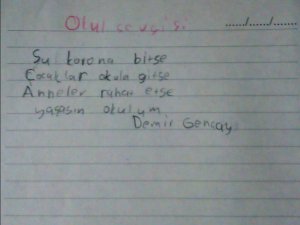 Okul sevgisi
...../...../.....
Şu korona bitse
Çocuklar okula gitse
Anneler rahat etse
yaşasın okulum
Demir Gençay